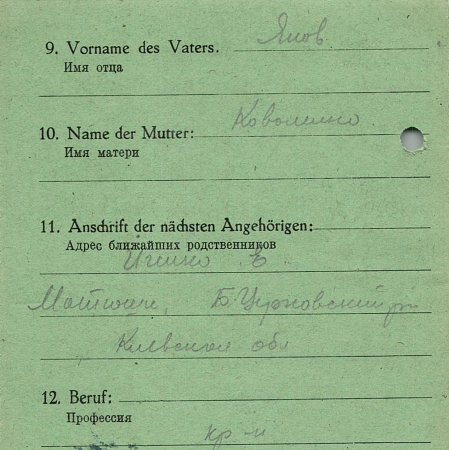 9. Vorname des Vaters. Яков
Имя отца
10. Name der Mutter:
Имя матери
11. Anschrift der nächsten Angehörigen:
Адрес ближайших родственников
Е
Б Церковский
Киевская обл
12. Beruf:
Профессия
кр-н